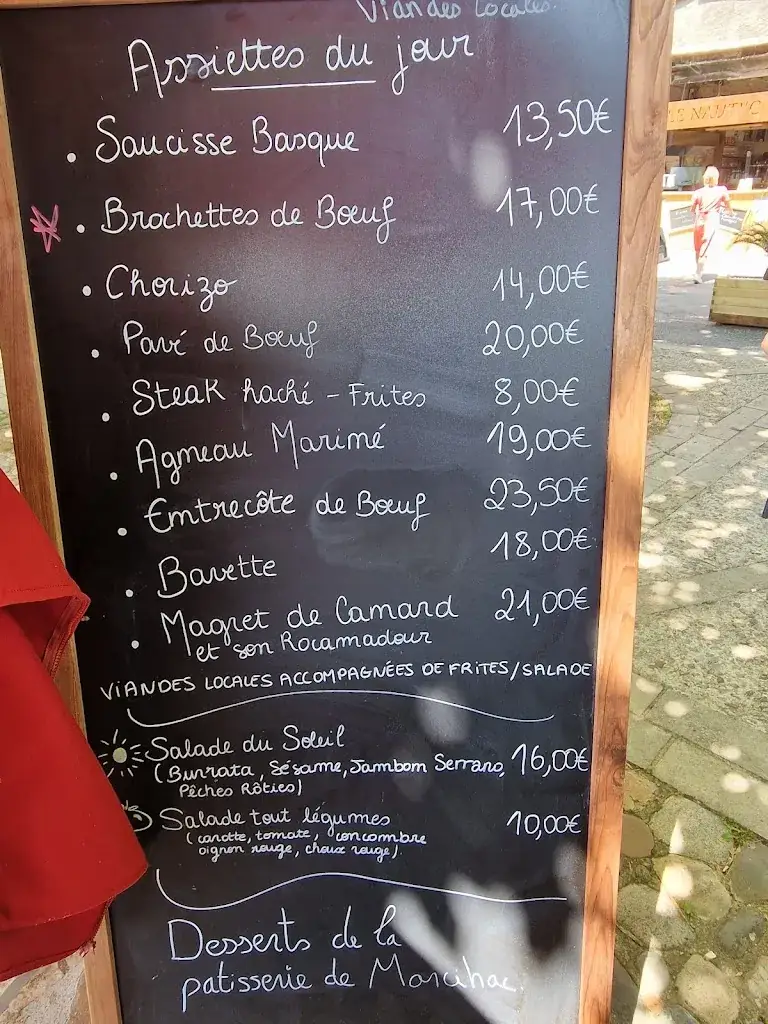 Viandes Locales
Assiettes du jour
. Saucisse Basque 13,50€
. Brochettes de Bœuf 17,00€
. Chorizo 14,00€
. Pavé de Bœuf 20,00€
. Steak haché - Frites 8,00€
. Agneau Mariné 19,00€
. Entrecôte de Bœuf 23,50€
. Bavette 18,00€
. Magret de Canard 21,00€
et son Rocamadour
VIANDES LOCALES ACCOMPAGNÉES DE FRITES/SALADE
Salade du Soleil
(Burrata, Sésame, Jambom Serrano, 16,00€
Pêches Rôties)
Salade tout légumes 10,00€
(carotte, tomate, concombre
oignon rouge, choux rouge).
Desserts de la
patisserie de